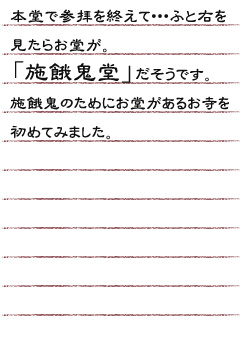 本堂で参拝を終えて・・・ふと右を
見たらお堂が。
「施餓鬼堂」だそうです。
施餓鬼のためにお堂があるお寺を
初めてみました。